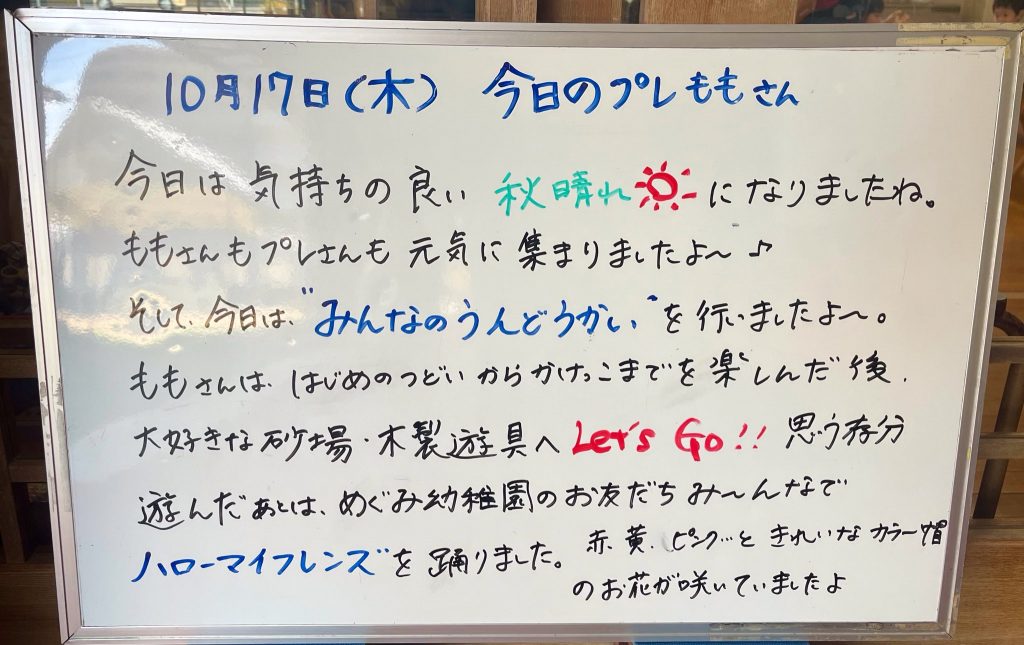 10月17日(木) 今日のプレももさん
今日は気持ちの良い 秋晴れ になりましたね。
ももさんもプレさんも 元気に 集まりましたよ〜♪
そして、今日は、"みんなのうんどうかい"を行いましたよ〜。
ももさんは、はじめのつどいからかけっこまでを楽しんだ後、
大好きな砂場・木製遊具へ Let's Go!! 思う存分
遊んだあとは、めぐみ幼稚園のお友だちみ〜んなで
ハローマイフレンズ"を踊りました。
赤、黄、ピンク…と きれいな カラー帽
のお花が咲いていましたよ